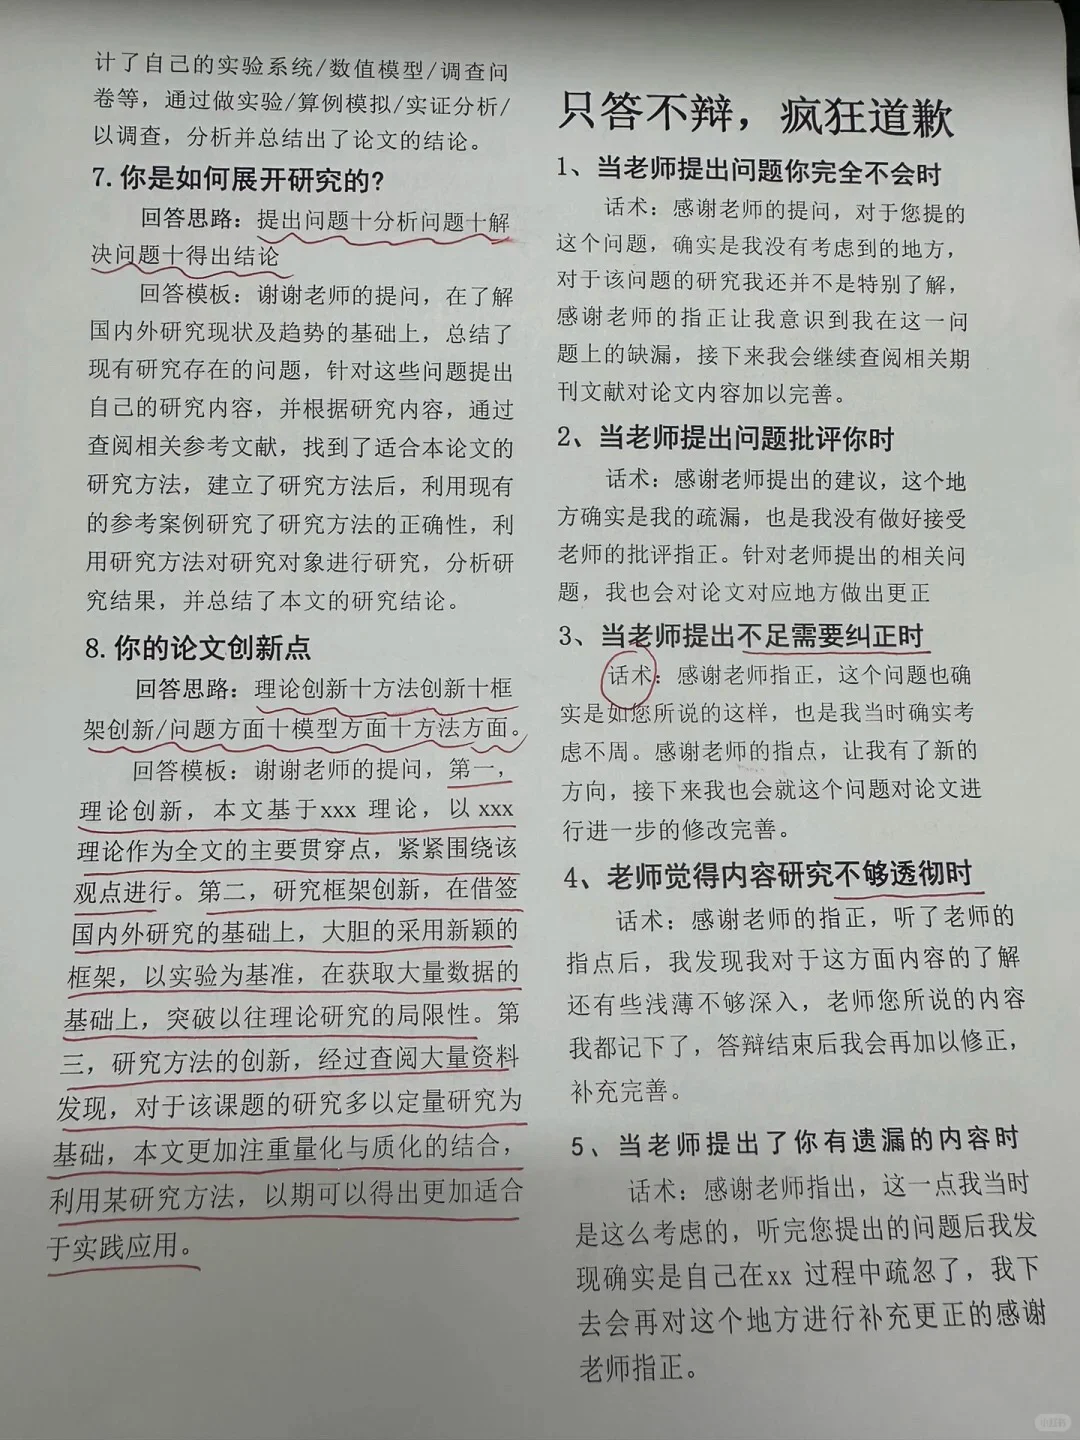 计了自己的实验系统/数值模型/调查问
卷等，通过做实验/算例模拟/实证分析/
以调查，分析并总结出了论文的结论。
7.你是如何展开研究的?
回答思路：提出问题十分析问题十解
决问题十得出结论
回答模板：谢谢老师的提问，在了解
国内外研究现状及趋势的基础上，总结了
现有研究存在的问题，针对这些问题提出
自己的研究内容，并根据研究内容，通过
查阅相关参考文献，找到了适合本论文的
研究方法，建立了研究方法后，利用现有
的参考案例研究了研究方法的正确性，利
用研究方法对研究对象进行研究，分析研
究结果，并总结了本文的研究结论。
8.你的论文创新点
回答思路：理论创新十方法创新十框
架创新/问题方面十模型方面十方法方面。
回答模板：谢谢老师的提问，第一，
理论创新，本文基于xxx 理论，以 xxx
理论作为全文的主要贯穿点，紧紧围绕该
观点进行。第二，研究框架创新，在借签
国内外研究的基础上，大胆的采用新颖的
框架，以实验为基准，在获取大量数据的
基础上，突破以往理论研究的局限性。第
三，研究方法的创新，经过查阅大量资料
发现，对于该课题的研究多以定量研究为
基础，本文更加注重量化与质化的结合，
利用某研究方法，以期可以得出更加适合
于实践应用。
只答不辩，疯狂道歉
1、当老师提出问题你完全不会时
话术：感谢老师的提问，对于您提的
这个问题，确实是我没有考虑到的地方，
对于该问题的研究我还并不是特别了解，
感谢老师的指正让我意识到我在这一问
题上的缺漏，接下来我会继续查阅相关期
刊文献对论文内容加以完善。
2、当老师提出问题批评你时
话术：感谢老师提出的建议，这个地
方确实是我的疏漏，也是我没有做好接受
老师的批评指正。针对老师提出的相关问
题，我也会对论文对应地方做出更正
3、当老师提出不足需要纠正时
话术：感谢老师指正，这个问题也确
实是如您所说的这样，也是我当时确实考
虑不周。感谢老师的指点，让我有了新的
方向，接下来我也会就这个问题对论文进
行进一步的修改完善。
4、老师觉得内容研究不够透彻时
话术：感谢老师的指正，听了老师的
指点后，我发现我对于这方面内容的了解
还有些浅薄不够深入，老师您所说的内容
我都记下了，答辩结束后我会再加以修正，
补充完善。
5、当老师提出了你有遗漏的内容时
话术：感谢老师指出，这一点我当时
是这么考虑的，听完您提出的问题后我发
现确实是自己在xx 过程中疏忽了，我下
去会再对这个地方进行补充更正的感谢
老师指正。
小红书